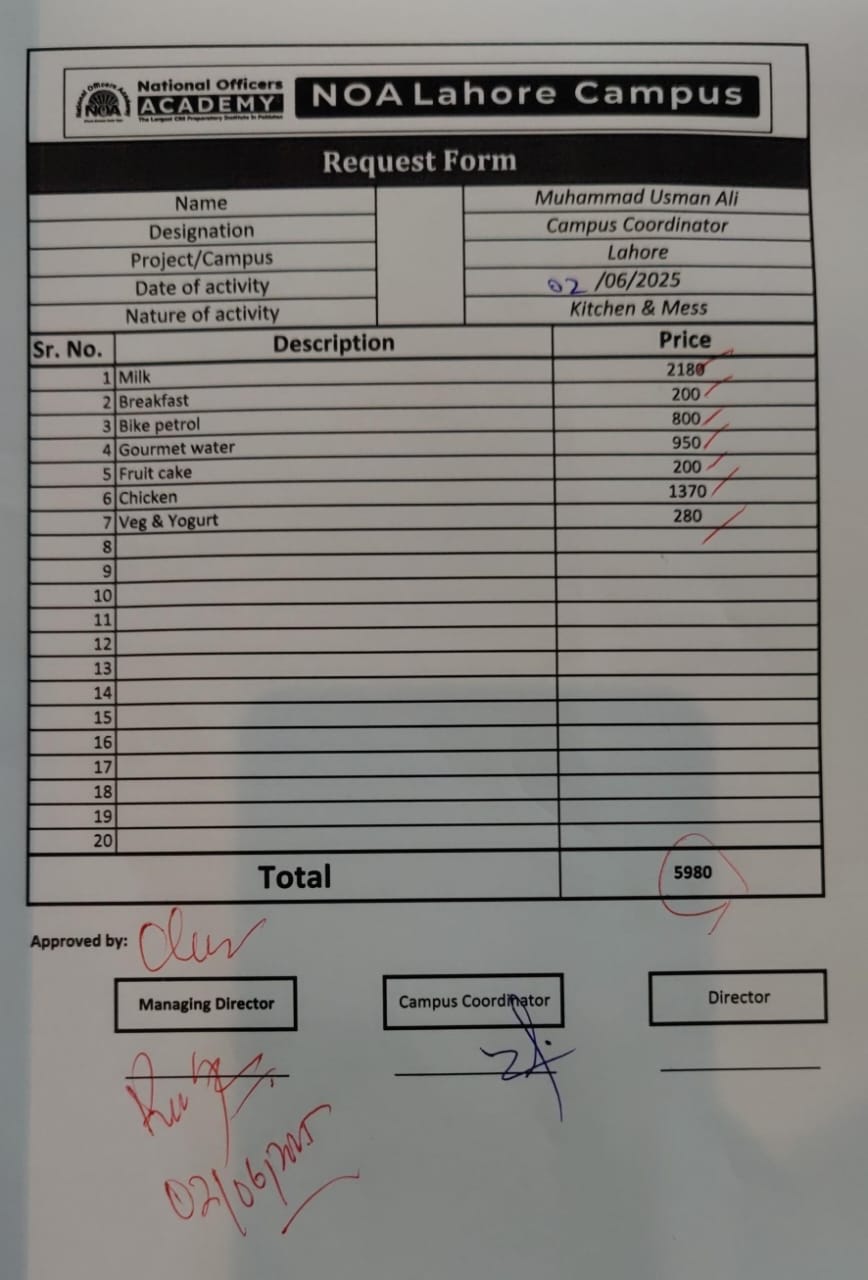 National Officers
ACADEMY
The Largest CSS Preparatory Institute in Pakistan
NOA
NOA Lahore Campus
Request Form
Name Muhammad Usman Ali
Designation Campus Coordinator
Project/Campus Lahore
Date of activity 02 /06/2025
Nature of activity Kitchen & Mess
Sr. No. Description Price
1 Milk 2180
2 Breakfast 200
3 Bike petrol 800
4 Gourmet water 950
5 Fruit cake 200
6 Chicken 1370
7 Veg & Yogurt 280
8
9
10
11
12
13
14
15
16
17
18
19
20
Total 5980
Approved by:
Managing Director Campus Coordinator Director
02/06/2025